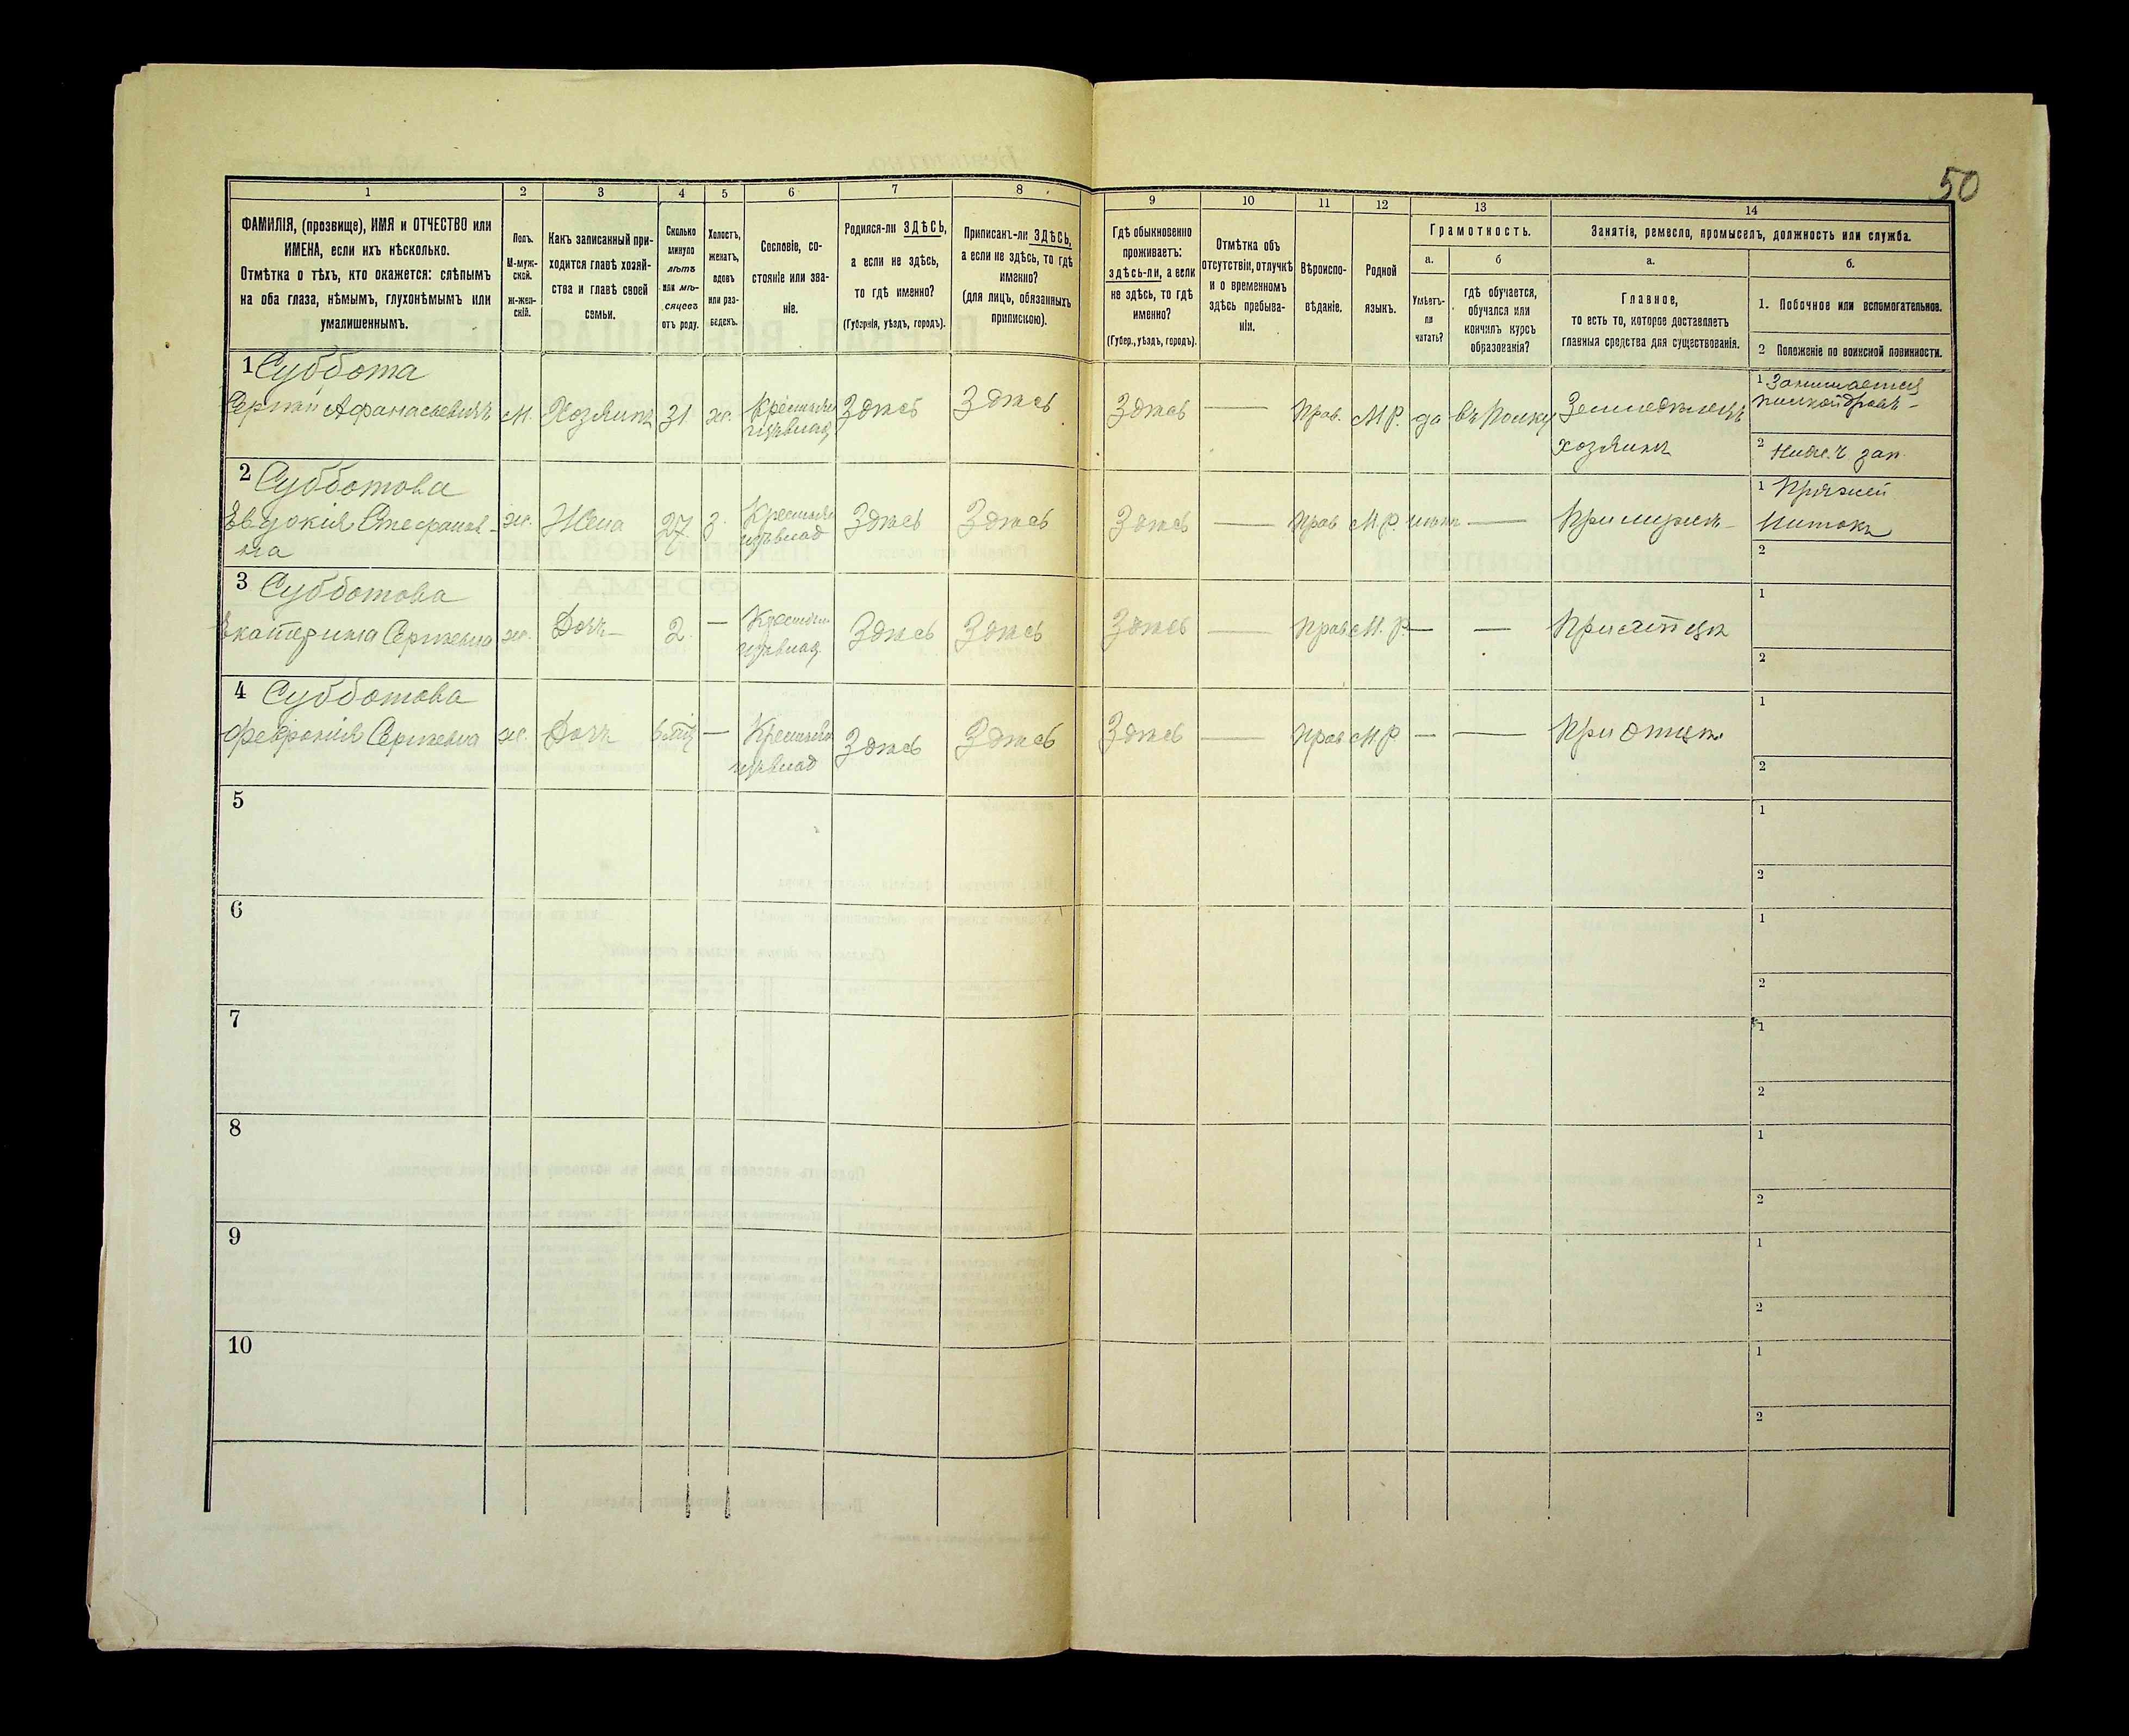 50
1
2
3
4
5
6
7
8
9
10
11
12
13
14
ФАМИЛІЯ, (прозвище), ИМЯ и ОТЧЕСТВО или
ИМЕНА, если ихъ нѣсколько.
Отмѣтка о тѣхъ, кто окажется: слѣпымъ
на оба глаза, нѣмымъ, глухонѣмымъ или
умалишеннымъ.
Полъ.
М-муж-
ской.
Ж-жен-
скій.
Какъ записанный при-
ходится главѣ хозяй-
ства и главѣ своей
семьи.
Сколько
минуло
лѣтъ
или мѣ-
сяцевъ
отъ роду.
Холостъ,
женатъ,
вдовъ
или раз-
веденъ.
Сословіе, со-
стояніе или зва-
ніе.
Родился-ли ЗДѢСЬ,
а если не здѣсь,
то гдѣ именно?
(Губернія, уѣздъ, городъ).
Приписанъ-ли ЗДѢСЬ,
а если не здѣсь, то гдѣ
именно?
(для лицъ, обязанныхъ
припискою).
Гдѣ обыкновенно
проживаетъ:
здѣсь-ли, а если
не здѣсь, то гдѣ
именно?
(Губер., уѣздъ, городъ).
Отмѣтка объ
отсутствіи, отлучкѣ
и о временномъ
здѣсь пребыва-
ніи.
Вѣроиспо-
вѣданіе.
Родной
языкъ.
Грамотность.
а.
Умѣетъ-
ли
читать?
б
гдѣ обучается,
обучался или
кончилъ курсъ
образованія?
Занятіе, ремесло, промыселъ, должность или служба.
а.
Главное,
то есть то, которое доставляетъ
главныя средства для существованія.
б.
1. Побочное или вспомогательное.
2 Положеніе по воинской повинности.
1 Суббота
Сергѣй Афанасьевичъ М. Хозяинъ 31. ж. Крестьян Здѣсь Здѣсь Здѣсь — Прав. М.Р. да въ Полку Земледѣлецъ
хозяинъ
1 Занимается
пилкой дровъ
2 Нижн. ч. зап.
2 Субботова
Евдокія Стефанов-
на ж. Жена 27. З. Крестьян Здѣсь Здѣсь Здѣсь — Прав М.Р. нѣтъ — При мужѣ
1 Пряжей
Нитокъ
2
3 Субботова
Екатерина Сергѣевна ж. Дочь 2. — Крестьян Здѣсь Здѣсь Здѣсь — Прав М.Р. — — При отцѣ
1
2
4 Субботова
Февронія Сергѣевна ж. Дочь — Крестьян Здѣсь Здѣсь Здѣсь — Прав М.Р — — При отцѣ
1
2
5
1
2
6
1
2
7
1
2
8
1
2
9
1
2
10
1
2